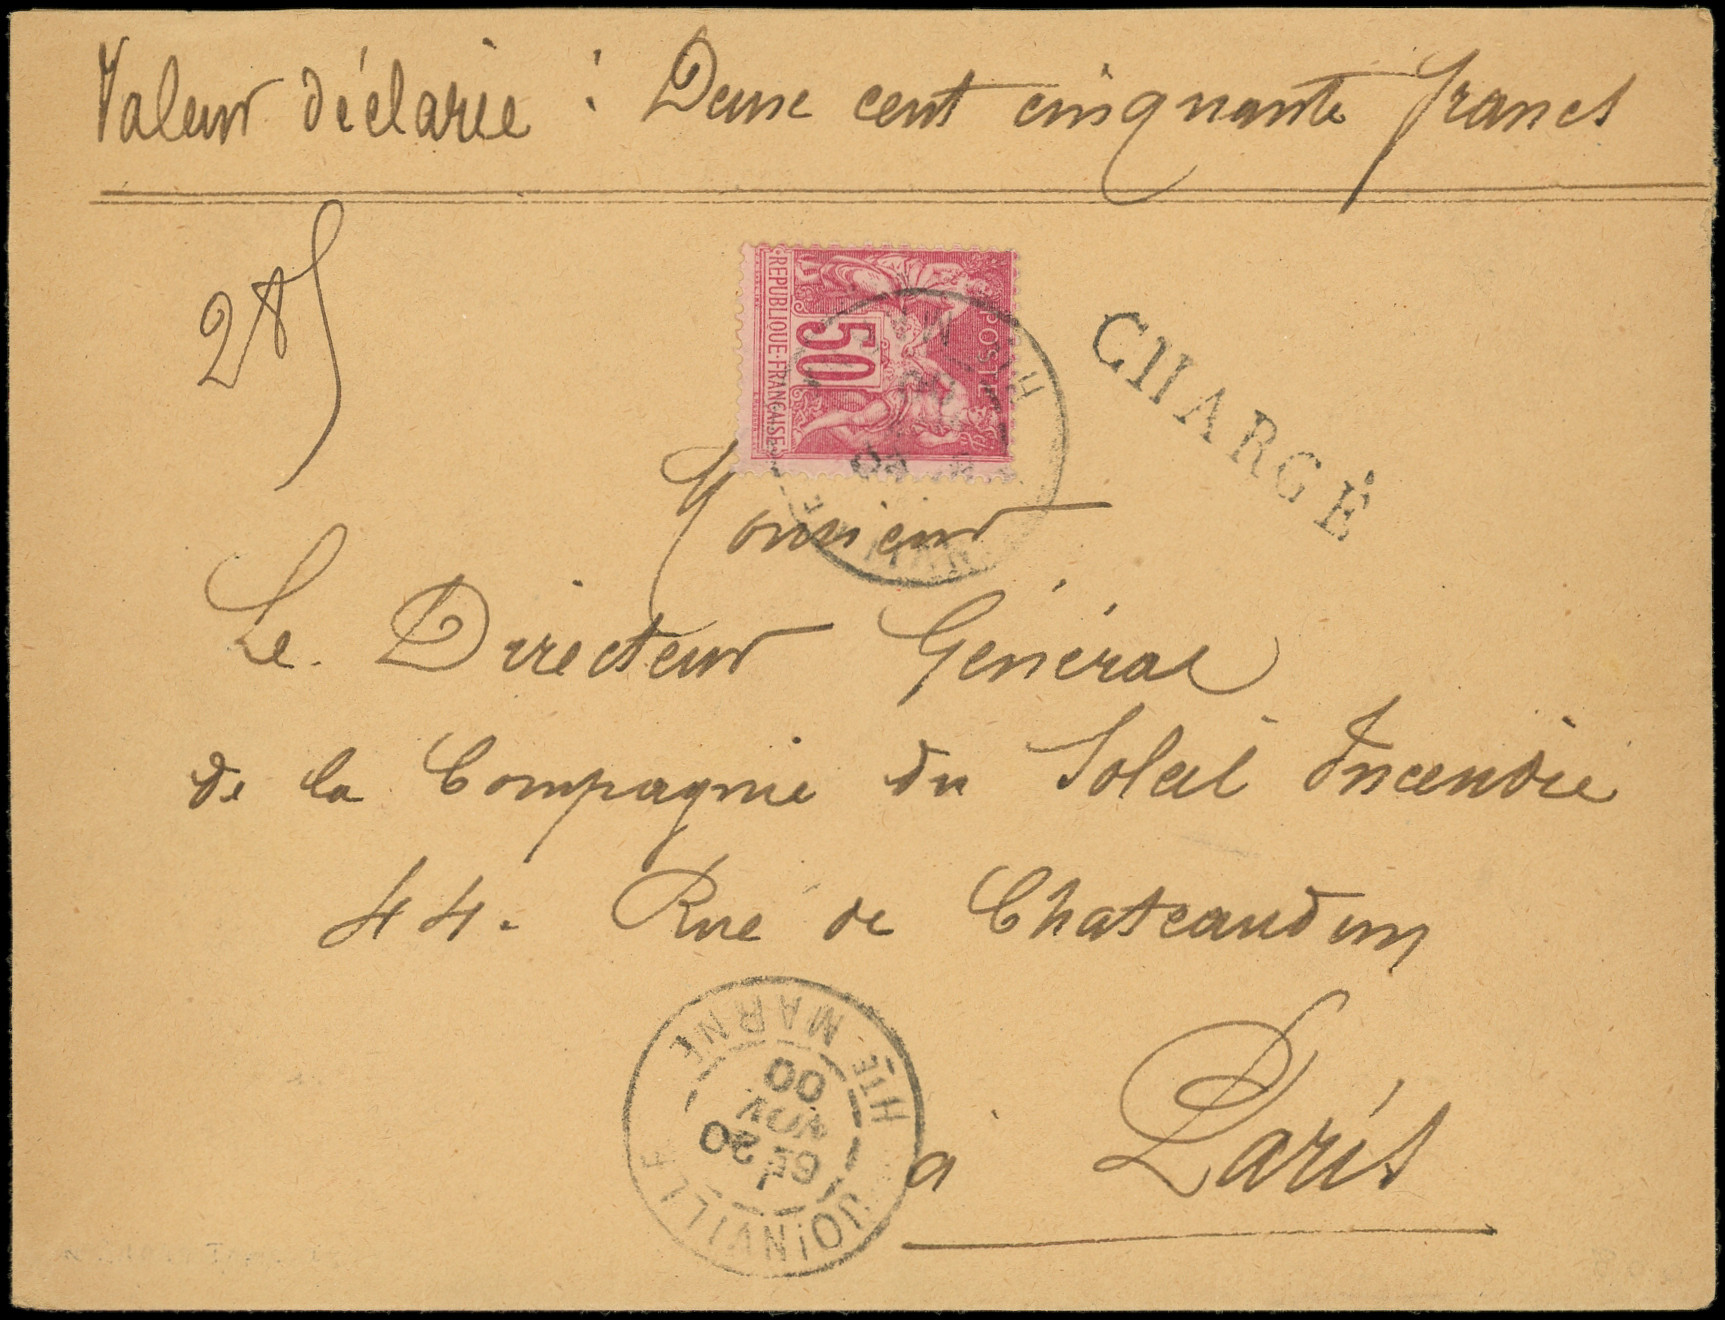 Valeur déclarée : Deux cent cinquante francs
285
POSTE
50
REPUBLIQUE-FRANÇAISE
CHARGÉ
Monsieur
Le Directeur Général
de la Compagnie du Soleil Incendie
44. Rue de Chateaudun
à Paris
JOINVILLE
6E 20
NOV
00
HTE MARNE